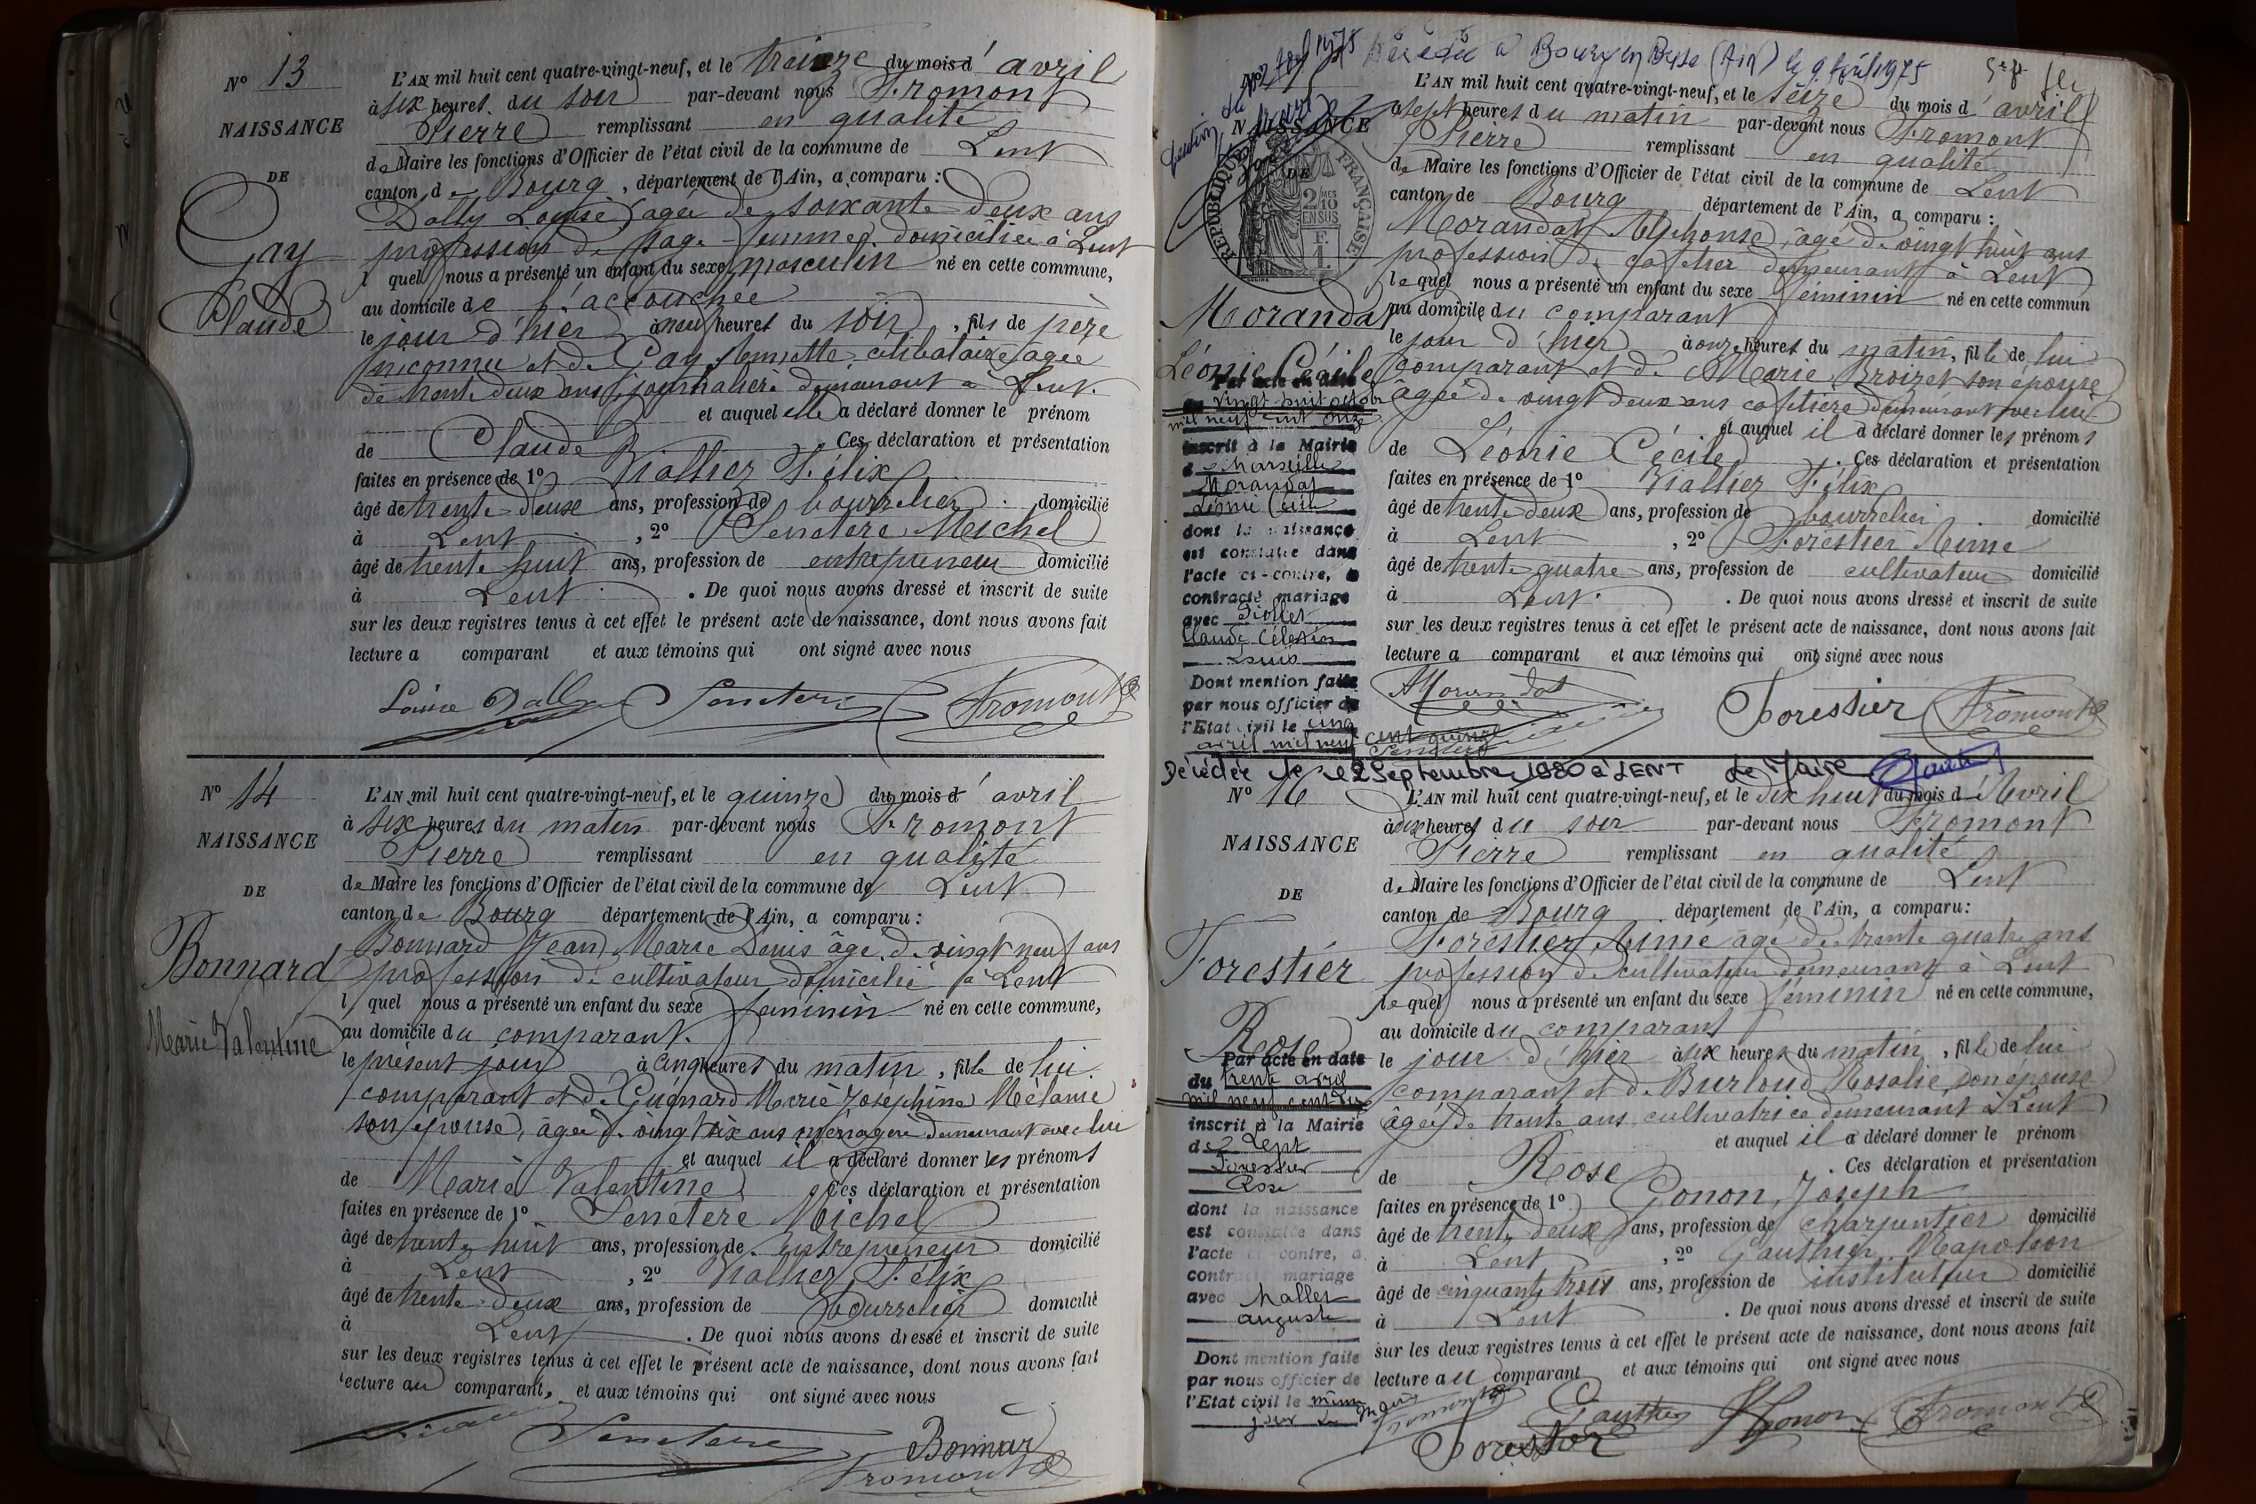 N° 13
NAISSANCE
DE
Gay
Claude
L'AN mil huit cent quatre-vingt-neuf, et le treize du mois d' avril
à six heures du soir par-devant nous Fromont
Pierre remplissant en qualité
de Maire les fonctions d'Officier de l'état civil de la commune de Lent
canton de Bourg, département de l'Ain, a comparu :
Dally Louise agée de soixante deux ans
profession de sage-femme domiciliée à Lent
l quel nous a présenté un enfant du sexe masculin né en cette commune,
au domicile de l'accouchée
le jour d'hier à neuf heures du soir, fils de père
inconnu et de Gay célibataire agée
de trente deux ans, journalière demeurant à Lent.
et auquel elle a déclaré donner le prénom
de Claude. Ces déclaration et présentation
faites en présence de 1° Viallier Félix
âgé de trente-deux ans, profession de bourrelier. domicilié
à Lent, 2° Senetere Michel
âgé de trente huit ans, profession de entrepreneur domicilié
à Lent. De quoi nous avons dressé et inscrit de suite
sur les deux registres tenus à cet effet le présent acte de naissance, dont nous avons fait
lecture a comparant et aux témoins qui ont signé avec nous
Louise Dally Senetere Fromont
N° 14
NAISSANCE
DE
Bonnard
Marie Valentine
L'AN mil huit cent quatre-vingt-neuf, et le quinze du mois d' avril
à six heures du matin par-devant nous Fromont
Pierre remplissant en qualité
de Maire les fonctions d'Officier de l'état civil de la commune de Lent
canton de Bourg département de l'Ain, a comparu :
Bonnard Jean Marie Denis âgé de vingt neuf ans
profession de cultivateur domicilié à Lent
l quel nous a présenté un enfant du sexe féminin né en cette commune,
au domicile du comparant.
le présent jour à cinq heures du matin, fille de lui
comparant et de Guignard Marie Joséphine Mélanie
son épouse, agée de vingt six ans ménagère demeurant avec lui
et auquel il a déclaré donner les prénoms
de Marie Valentine. Ces déclaration et présentation
faites en présence de 1° Senetere Michel
âgé de trente huit ans, profession de entrepreneur domicilié
à Lent, 2° Viallier Félix
âgé de trente-deux ans, profession de bourrelier domicilié
à Lent. De quoi nous avons dressé et inscrit de suite
sur les deux registres tenus à cet effet le présent acte de naissance, dont nous avons fait
lecture au comparant, et aux témoins qui ont signé avec nous
Senetere Bonnard
Fromont
Décédée à Bourg en Bresse (Ain) le 9 Avril 1975
NAISSANCE
DE
RÉPUBLIQUE FRANÇAISE
Morandat
Léonie Cécile
Par acte en date
du vingt huit octobre
mil neuf cent onze
inscrit à la Mairie
d Marseille
Morandat
Léonie Cécile
dont la naissance
est constatée dans
l'acte ci-contre, a
contracté mariage
avec Piollet
Claude Célestin
Louis
Dont mention faite
par nous officier de
l'Etat civil le cinq
avril mil neuf cent quinze
L'AN mil huit cent quatre-vingt-neuf, et le seize du mois d' avril
à sept heures du matin par-devant nous Fromont
Pierre remplissant en qualité
de Maire les fonctions d'Officier de l'état civil de la commune de Lent
canton de Bourg département de l'Ain, a comparu :
Morandat Alphonse, âgé de vingt huit ans
profession de cafetier demeurant à Lent
le quel nous a présenté un enfant du sexe féminin né en cette commun
au domicile du comparant
le jour d'hier à onze heures du matin, fille de lui
comparant et de Marie Broizet son épouse
âgée de vingt deux ans cafetière demeurant avec lui
et auquel il a déclaré donner les prénoms
de Léonie Cécile. Ces déclaration et présentation
faites en présence de 1° Viallier Félix
âgé de trente deux ans, profession de bourrelier. domicilié
à Lent, 2° Forestier Aimé
âgé de trente quatre ans, profession de cultivateur domicilié
à Lent. De quoi nous avons dressé et inscrit de suite
sur les deux registres tenus à cet effet le présent acte de naissance, dont nous avons fait
lecture a comparant et aux témoins qui ont signé avec nous
AMorandat Forestier Fromont
Décédée le 2 Septembre 1980 à LENT le Maire
N° 16
NAISSANCE
DE
Forestier
Rose
Par acte en date
du trente avril
mil neuf cent dix
inscrit à la Mairie
de Lent
Forestier
Rose
dont la naissance
est constatée dans
l'acte ci contre, a
contracté mariage
avec Mallet
auguste
Dont mention faite
par nous officier de
l'Etat civil le même
jour
L'AN mil huit cent quatre-vingt-neuf, et le dix huit du mois d'Avril
à six heures du soir par-devant nous Fromont
Pierre remplissant en qualité
de Maire les fonctions d'Officier de l'état civil de la commune de Lent
canton de Bourg département de l'Ain, a comparu :
Forestier Aimé âgé de trente quatre ans
profession de cultivateur demeurant à Lent
le quel nous a présenté un enfant du sexe féminin né en cette commune,
au domicile du comparant
le jour d'hier à six heures du matin, fille de lui
comparant et de Burloud Rosalie son épouse
âgée de trente ans cultivatrice demeurant à Lent
et auquel il a déclaré donner le prénom
de Rose. Ces déclaration et présentation
faites en présence de 1° Gonon, Joseph
âgé de trente deux ans, profession de charpentier domicilié
à Lent, 2° Gauthier Napoléon
âgé de cinquante trois ans, profession de instituteur domicilié
à Lent. De quoi nous avons dressé et inscrit de suite
sur les deux registres tenus à cet effet le présent acte de naissance, dont nous avons fait
lecture au comparant et aux témoins qui ont signé avec nous
Gauthier Gonon Fromont
Forestier